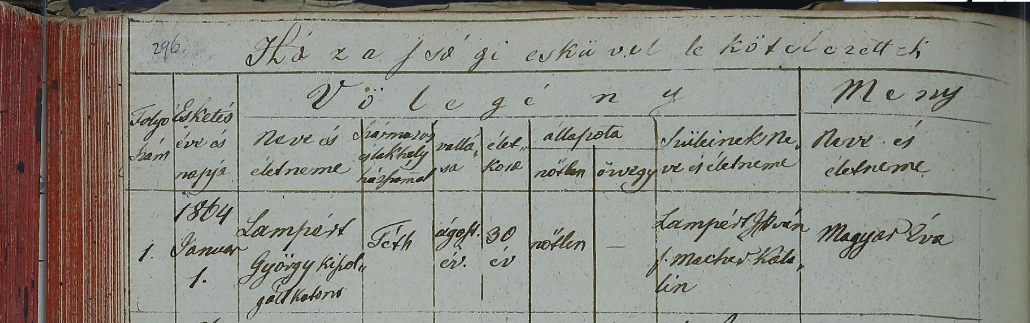 296.
Házassági esküvel lekötelezettek
Völegény
Meny
Folyó szám
Esketés éve és napja
Neve és életneme
Származás és lakhely házszámal
vallása
élet kora
állapota
nőtlen
özvegy
Szüleinek Neve és életneme
Neve és életneme
1.
1864 Januar 1.
Lampért György kipolgált katona
Téth
ágost. év.
30 év
nőtlen
—
Lampért István
Katalin
Magyar Éva